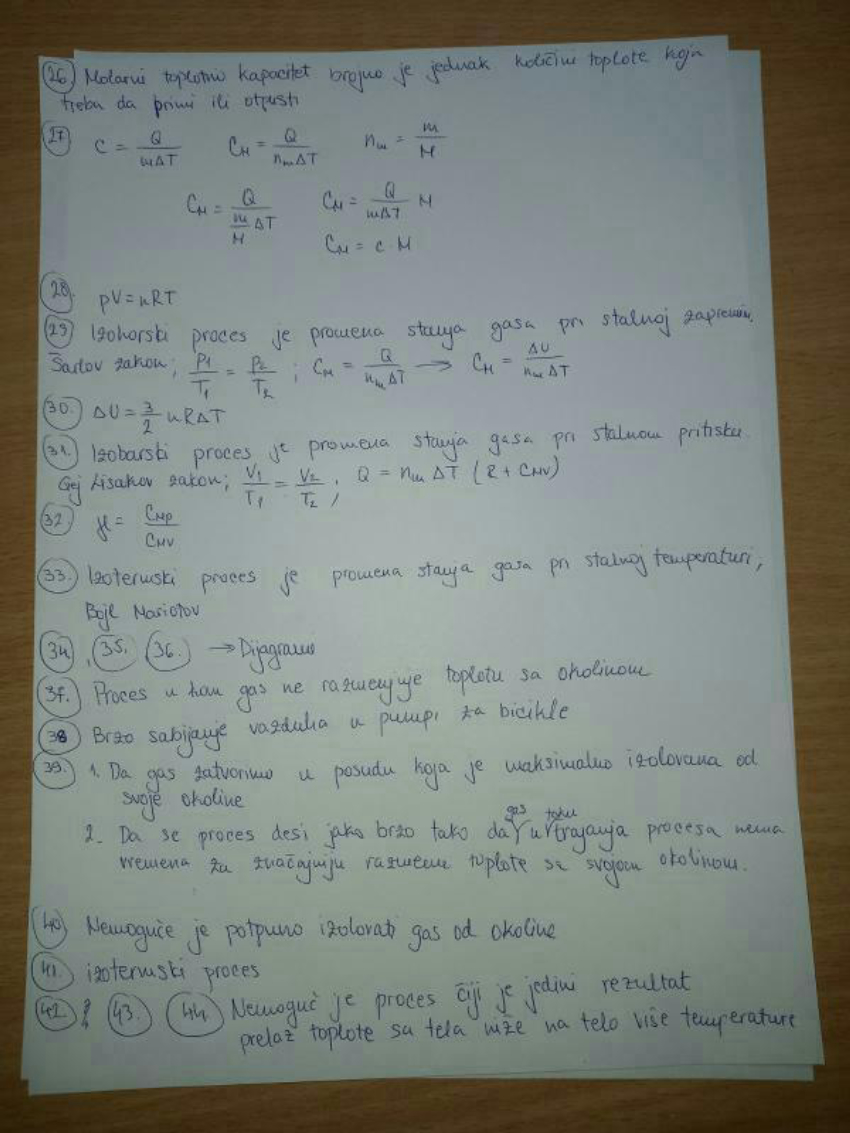 26. Molarni toplotni kapacitet brojno je jednak količini toplote koja
treba da primi ili otpusti
27. c = Q / mΔT    C_M = Q / n_mΔT    n_m = m / M
C_M = Q / (m/M ΔT)    C_M = Q / mΔT M
C_M = c M
28. pV = nRT
29. Izohorski proces je promena stanja gasa pri stalnoj zapremini,
Šarlov zakon; P1 / T1 = P2 / T2 ; C_M = Q / n_mΔT → C_M = ΔU / n_mΔT
30. ΔU = 3/2 nRΔT
31. Izobarski proces je promena stanja gasa pri stalnom pritisku
Gej Lisakov zakon; V1 / T1 = V2 / T2 ; Q = n_m ΔT (R + C_MV)
32. γ = C_MP / C_MV
33. Izotermski proces je promena stanja gasa pri stalnoj temperaturi,
Bojl Mariotov
34. , 35. 36. → Dijagrami
37. Proces u kom gas ne razmenjuje toplotu sa okolinom
38 Brzo sabijanje vazduha u pumpi za bicikle
39. 1. Da gas zatvorimo u posudu koja je maksimalno izolovana od
svoje okoline
2. Da se proces desi jako brzo tako da gas u toku trajanja procesa nema
vremena za značajniju razmenu toplote sa svojom okolinom.
40 Nemoguće je potpuno izolovati gas od okoline
41. izotermski proces
42. ? 43. 44. Nemoguć je proces čiji je jedini rezultat
prelaz toplote sa tela niže na telo više temperature